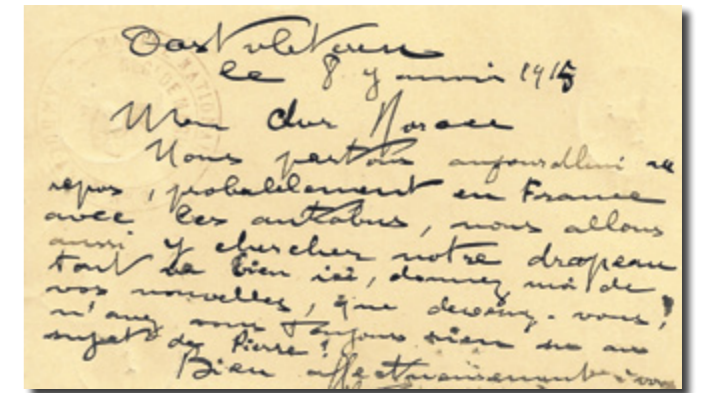 Oostvleteren
le 8 Janvier 1915
Mon cher Horace
Nous partons aujourd'hui au
repos, probablement en France
avec les autobus, nous allons
aussi y chercher notre drapeau
tout va bien ici, donnez moi de
vos nouvelles, que devenez-vous,
n'avez vous toujours rien su au
sujet de Pierre?
Bien affectueusement à vous